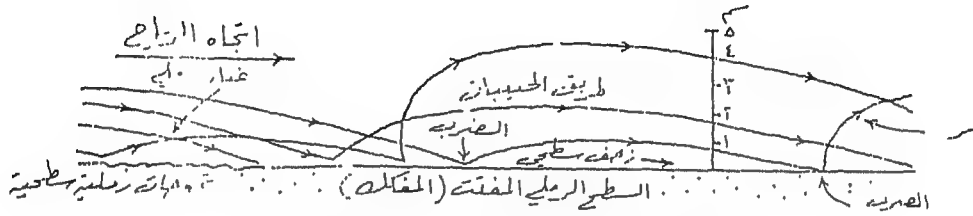 اتجاه الرياح
غبار
طريق الحبيبات
الضرب
زحف سطحي
م
٥
٤
٣
٢
١
تموجات رملية سطحية
السطح الرملي المفتت (المفكك)
الضرب